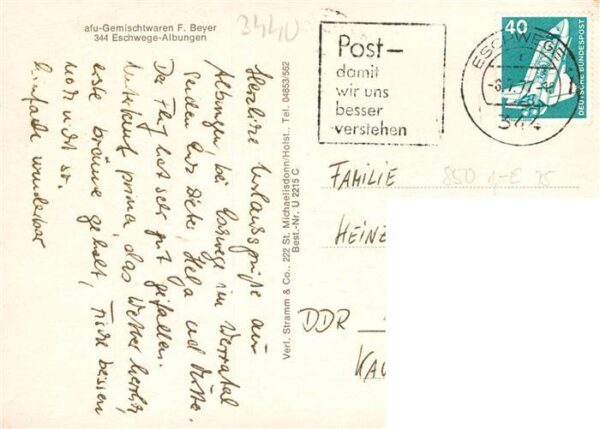 afu-Gemischtwaren F. Beyer
344 Eschwege-Albungen
3440
Post-
damit
wir uns
besser
verstehen
ESCHWEGE
344
40
DEUTSCHE BUNDESPOST
Verl. Stramm & Co., 222 St. Michaelisdonn/Holst., Tel. 04853/562
Best.-Nr. U 2215 C
Herzliche Urlaubsgrüße aus
Albungen, bei Eschwege im Werratal
senden Euch Dieter, Helga und
Der Flug hat sehr gut gefallen.
Unterkunft prima, das Wetter herrlich,
erste bräune geholt,
was
Einfach wunderbar
FAMILIE
HEINZ
DDR
KAU